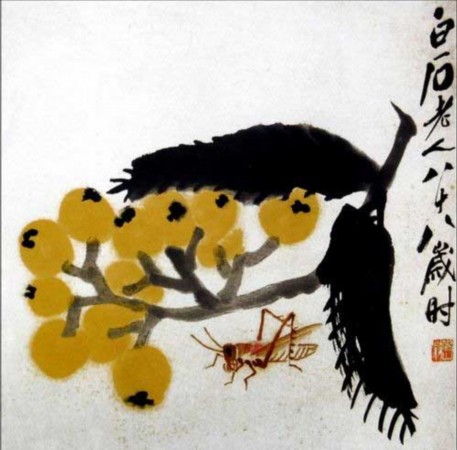 白石老人八十八歲时